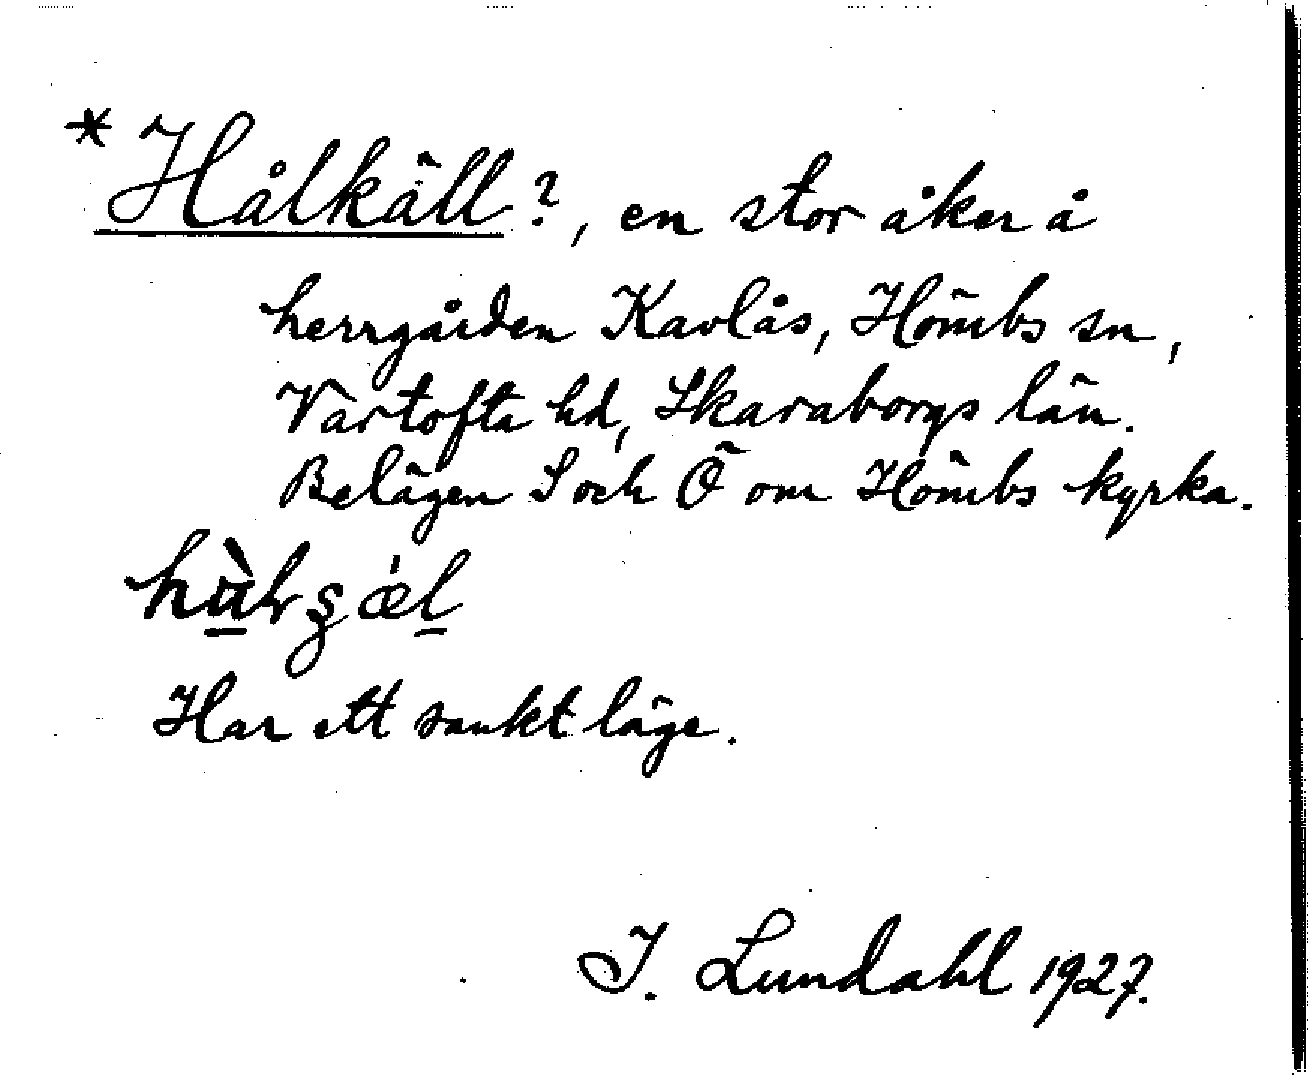 * Hålkäll?, en stor åker å
herrgården Kavlås, Hömbs sn,
Vartofta hd, Skaraborgs län.
Belägen S och Ö om Hömbs kyrka.
Har ett sankt läge.
I. Lundahl 1927.